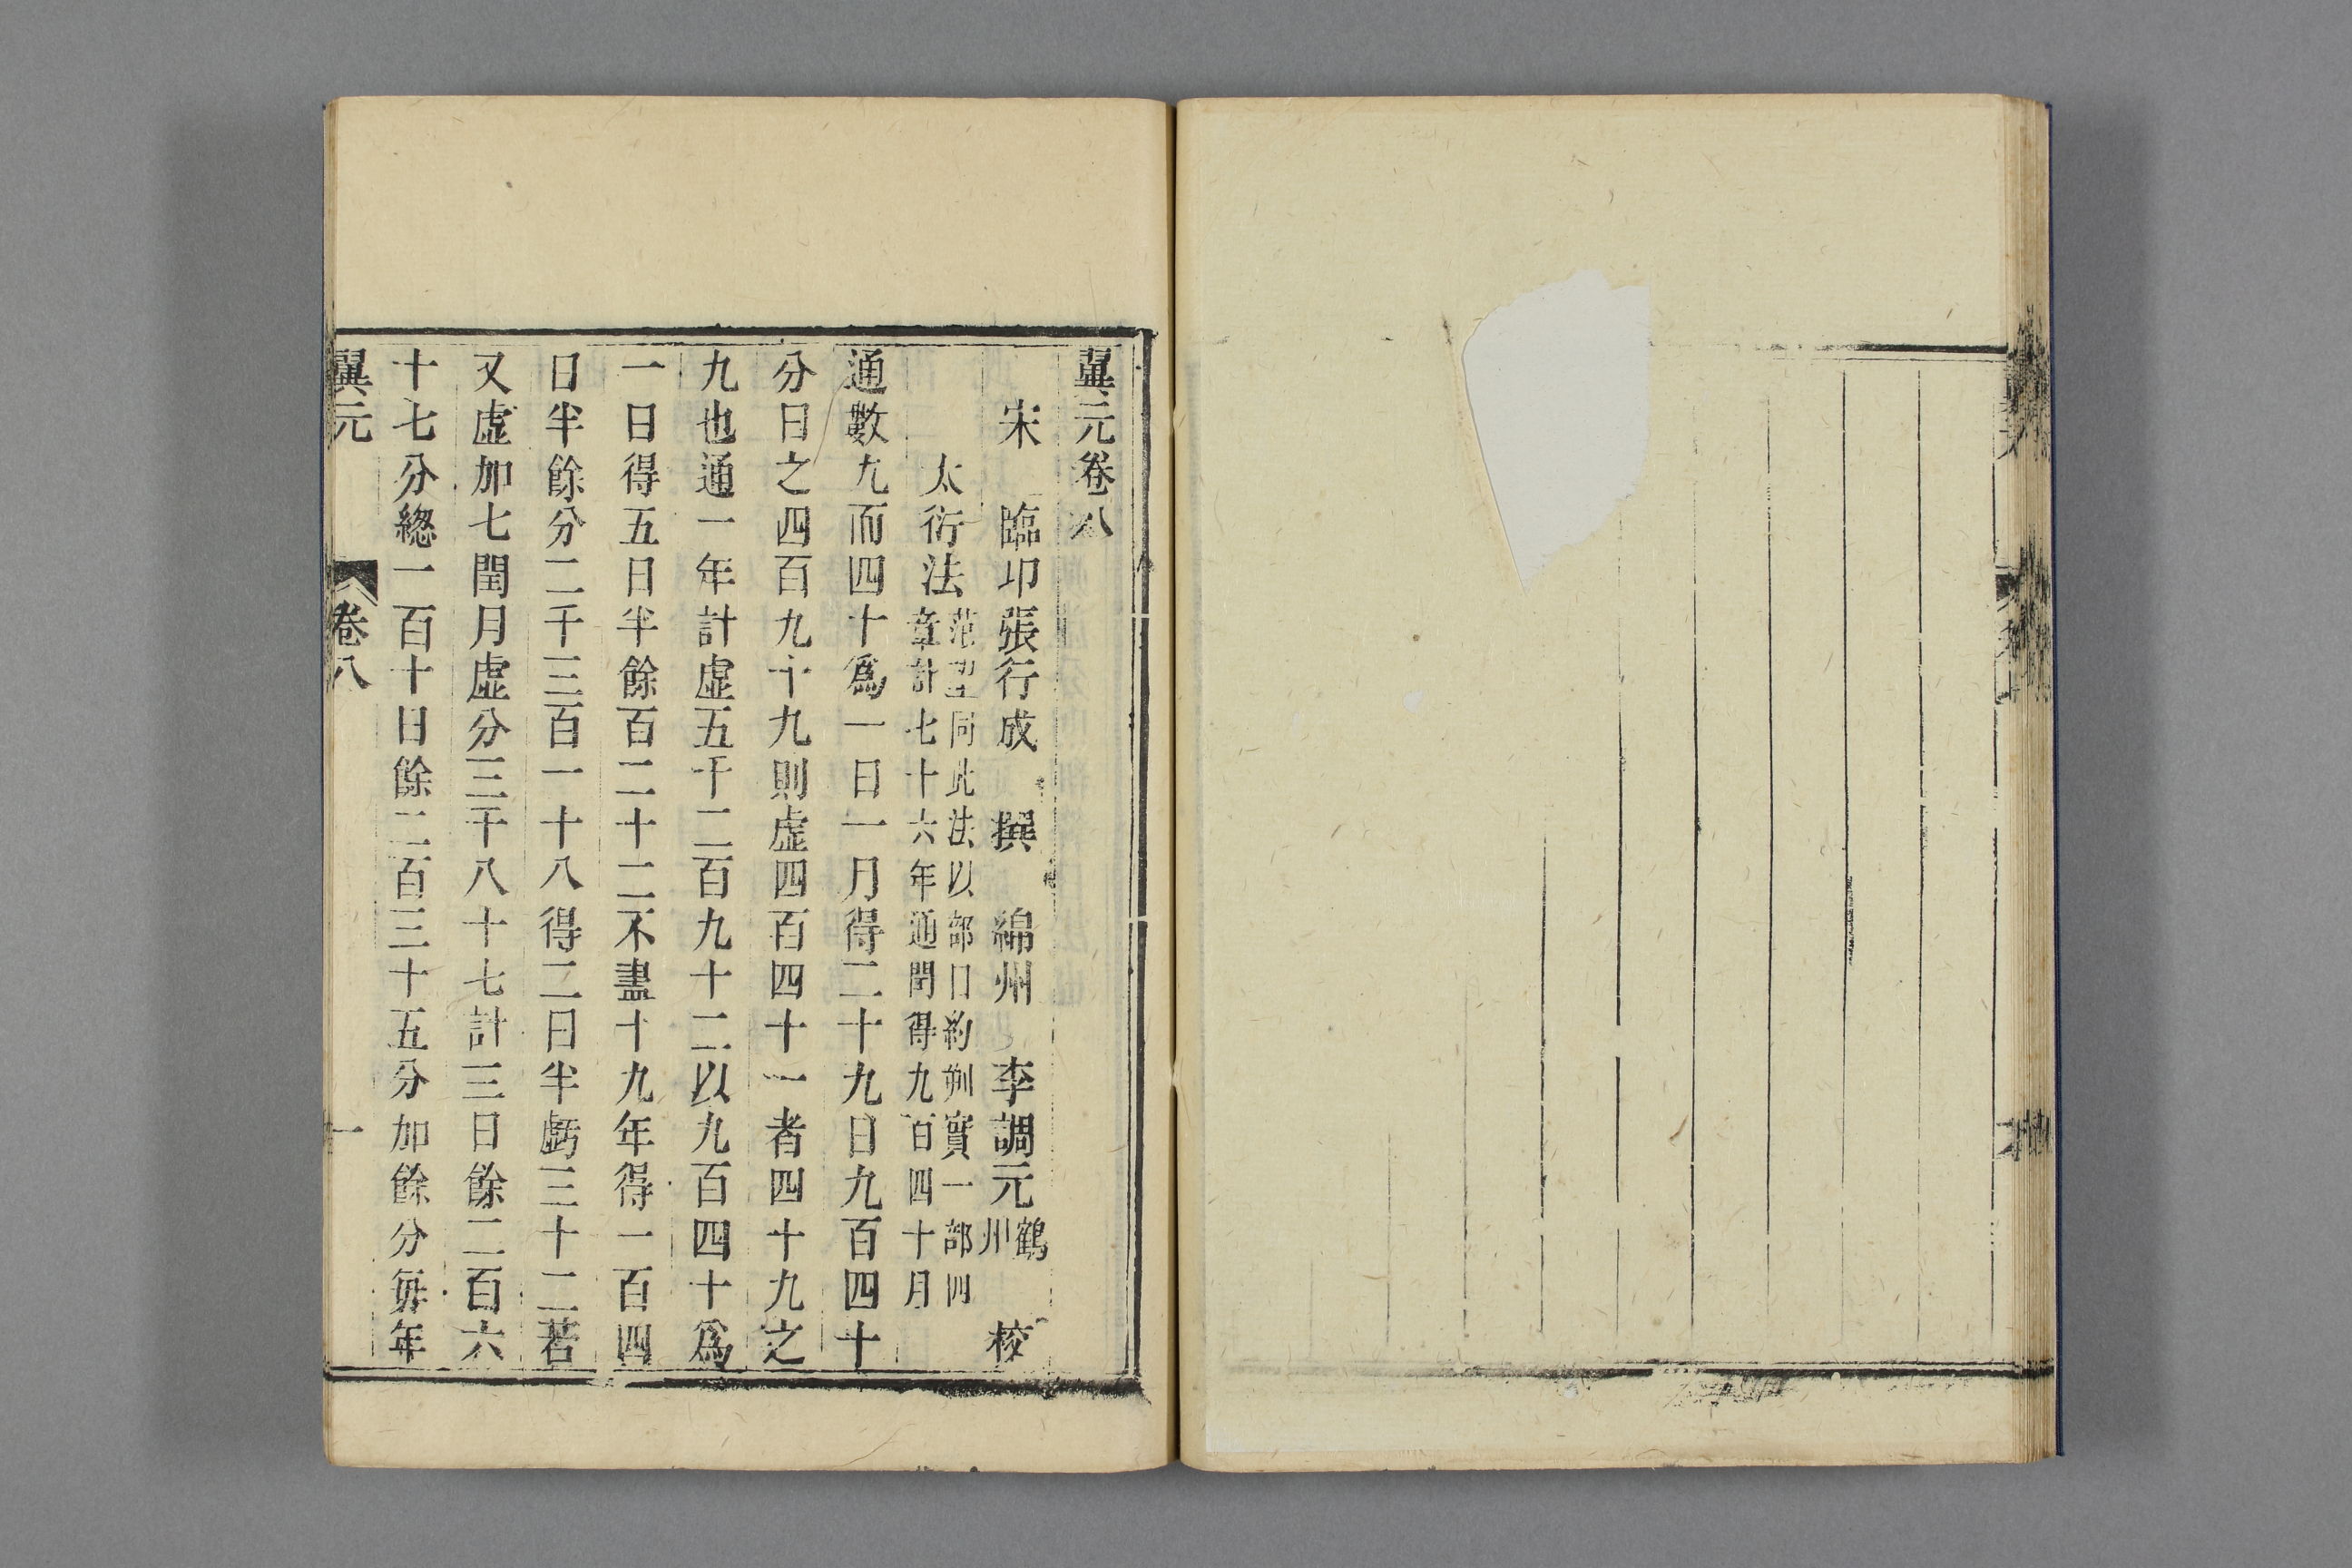 翼元卷八
宋　臨卭張行成　撰　綿州　李調元鶴州　校
太衍法范望同此法以部日約朔實一部四
章計七十六年通閏得九百四十月
通數九而四十爲一日一月得二十九日九百四十
分日之四百九十九則虛四百四十一者四十九之
九也通一年計虛五千二百九十二以九百四十爲
一日得五日半餘百二十二不盡十九年得一百四
日半餘分二千三百一十八得二日半虧三十二若
又虛加七閏月虛分三千八十七計三日餘二百六
十七分總一百十日餘二百三十五分加餘分每年
翼元　卷八　一